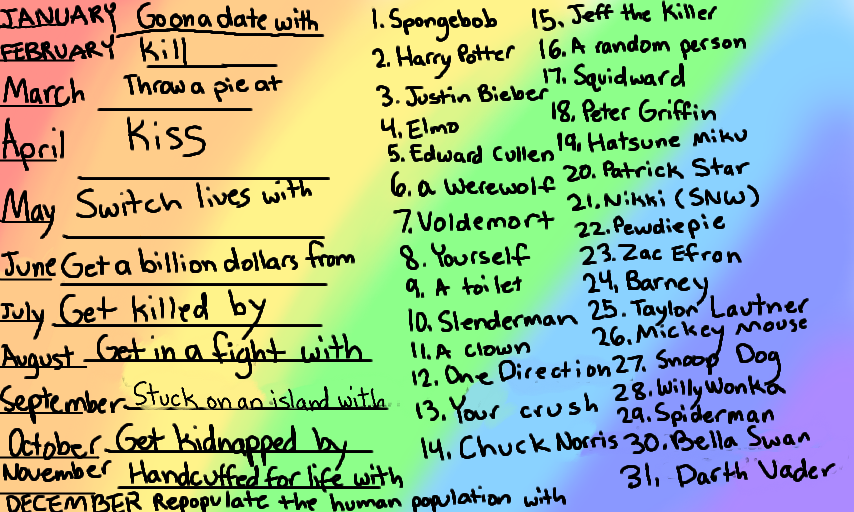 JANUARY Go on a date with
FEBRUARY Kill
March Throw a pie at
April Kiss
May Switch lives with
June Get a billion dollars from
July Get killed by
August Get in a fight with
September Stuck on an island with
October Get kidnapped by
November Handcuffed for life with
DECEMBER Repopulate the human population with
1. Spongebob
2. Harry Potter
3. Justin Bieber
4. Elmo
5. Edward Cullen
6. a Werewolf
7. Voldemort
8. Yourself
9. A toilet
10. Slenderman
11. A clown
12. One Direction
13. Your crush
14. Chuck Norris
15. Jeff the Killer
16. A random person
17. Squidward
18. Peter Griffin
19. Hatsune Miku
20. Patrick Star
21. Nikki (SNW)
22. Pewdiepie
23. Zac Efron
24. Barney
25. Taylon Lautner
26. Mickey Mouse
27. Snoop Dog
28. Willy Wonka
29. Spiderman
30. Bella Swan
31. Darth Vader